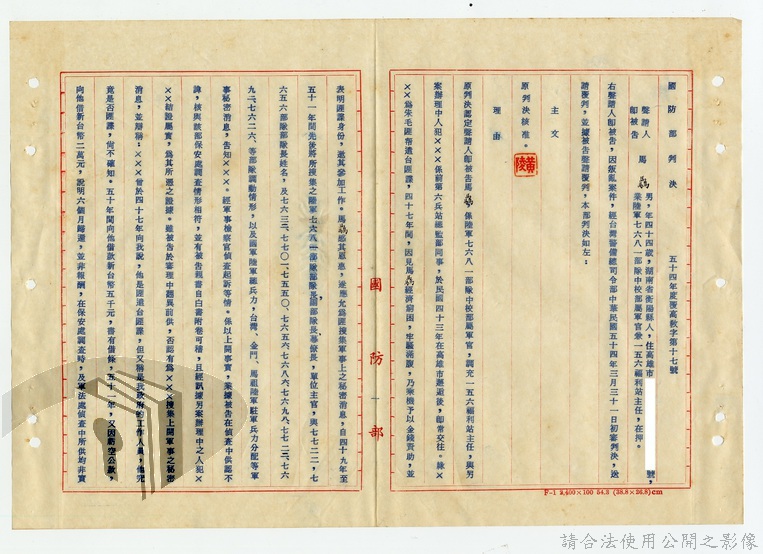 國防部判決　五十四年度覆高教字第十七號
聲請人
即被告　馬　　男，年四十四歲，湖南省衡陽縣人，住高雄市　　號，
業陸軍七六八一部隊中校部屬軍官兼一五六福利站主任，在押。
右聲請人即被告，因叛亂案件，經台灣警備總司令部中華民國五十四年三月三十一日初審判決，送
請覆判，並據被告聲請覆判，本部判決如左：
主文
原判決核准。
理由
原判決認定聲請人即被告馬　係陸軍七六八一部隊中校部屬軍官，調充一五六福利站主任，與另
案辦理中人犯×××係前第六兵站總監部同事，於民國四十三年在高雄市邂逅後，即常交往。緣×
××為朱毛匪幫遣台匪諜，四十七年間，因見馬　經濟窮困，牢騷滿腹，乃乘機予以金錢資助，並
表明匪諜身份，邀其參加工作。馬　　其恩惠，遂應允為匪搜集軍事上之秘密消息，自四十九年至
五十一年間先後將所搜集之陸軍七六八一部隊部隊長　副部隊長　僚長，單位主官，與七七二二，七
六五六部隊部隊長姓名，及七六三三、七七〇一、七五五〇、七六五六、七六八六、七六九八、七七二三、七六
九二、七六二六、等部隊調動情形，以及國軍陸軍總兵力，台灣、金門、馬祖陸軍駐軍兵力分配等軍
事秘密消息，告知×××。經軍事檢察官偵查起訴等情。係以上開事實，業據被告在偵查中供認不
諱，核與該部保安處調查情形相符，並有被告親書自白書附卷可稽，且經訊據另案辦理中之人犯×
××結證屬實，為其所憑之證據。雖被告於審理中翻異前供，否認有為×××搜集上開軍事之秘密
消息，並辯稱：×××曾於四十七年向我說，他是匪遣台匪諜，但又稱是我政府的工作人員，他究
竟是否匪諜，尚不確知。五十年間向他借款新台幣五千元，書有借條，五十一年，又因虧空公款，
向他借新台幣二萬元，說明六個月歸還，並非報酬，在保安處調查時，及軍法處偵查中所供均非實
國防部
F-1 3,400×100 54.3 (38.8×26.8)cm
請合法使用公開之影像